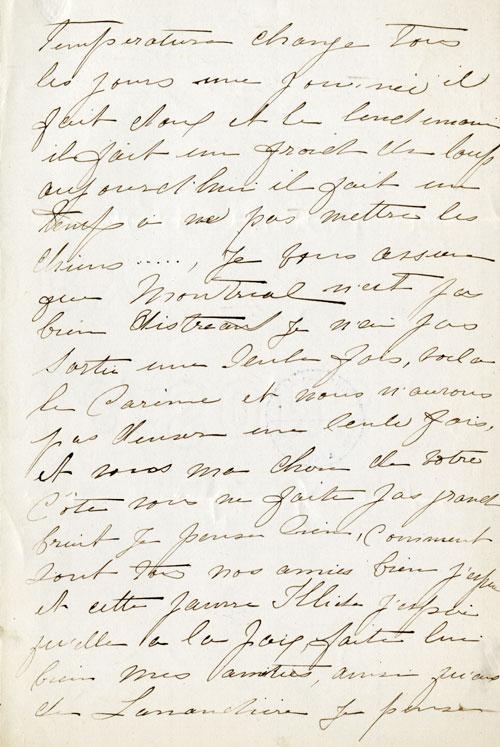 Temperature change tous
les jours une journée il
fait doux et le lendemain
il fait un froid de loup
aujourd'hui il fait un
temps a ne pas mettre les
chiens ....., Je vous assure
que Montreal n'est pas
bien distreant Je n'ai pas
sortie une seule fois, voila
le Carème et nous n'aurons
pas danser une seule fois,
et vous ma chere de votre
Côte vous ne faite pas grand
bruit Je pense bien, Comment
sont tos nos amies bien j'espère
et cette pauvre j'espère
qu'elle a la paix, faite lui
bien mes amitiés, ainsi qu'aux
de Lanaudière Je pense